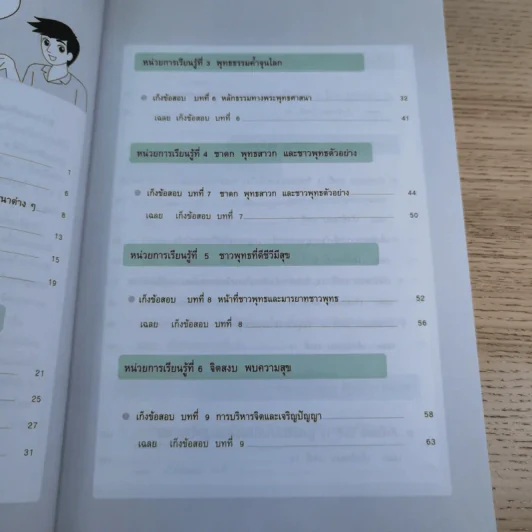 1
5
นาต่าง ๆ 8
13
15
19
21
25
27
31
หน่วยการเรียนรู้ที่ 3 พุทธธรรมค้ำจุนโลก
เก็งข้อสอบ บทที่ 6 หลักธรรมทางพระพุทธศาสนา 32
เฉลย เก็งข้อสอบ บทที่ 6 41
หน่วยการเรียนรู้ที่ 4 ชาดก พุทธสาวก และชาวพุทธตัวอย่าง
เก็งข้อสอบ บทที่ 7 ชาดก พุทธสาวก และชาวพุทธตัวอย่าง 44
เฉลย เก็งข้อสอบ บทที่ 7 50
หน่วยการเรียนรู้ที่ 5 ชาวพุทธที่ดีชีวีมีสุข
เก็งข้อสอบ บทที่ 8 หน้าที่ชาวพุทธและมารยาทชาวพุทธ 52
เฉลย เก็งข้อสอบ บทที่ 8 56
หน่วยการเรียนรู้ที่ 6 จิตสงบ พบความสุข
เก็งข้อสอบ บทที่ 9 การบริหารจิตและเจริญปัญญา 58
เฉลย เก็งข้อสอบ บทที่ 9 63